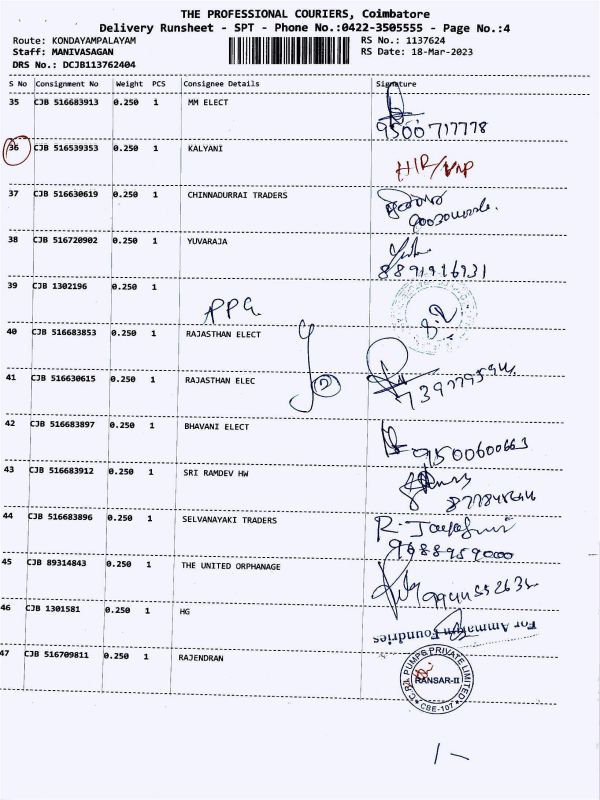 THE PROFESSIONAL COURIERS, Coimbatore
Delivery Runsheet - SPT - Phone No.:0422-3505555 - Page No.:4
Route: KONDAYAMPALAYAM RS No.: 1137624
Staff: MANIVASAGAN RS Date: 18-Mar-2023
DRS No.: DCJB113762404
S No Consignment No Weight PCS Consignee Details Signature
35 CJB 516683913 0.250 1 MM ELECT
9500717778
36 CJB 516539353 0.250 1 KALYANI
37 CJB 516630619 0.250 1 CHINNADURRAI TRADERS
38 CJB 516720902 0.250 1 YUVARAJA
39 CJB 1302196 0.250 1
PPG
40 CJB 516683853 0.250 1 RAJASTHAN ELECT
41 CJB 516630615 0.250 1 RAJASTHAN ELEC
42 CJB 516683897 0.250 1 BHAVANI ELECT
9500600663
43 CJB 516683912 0.250 1 SRI RAMDEV HW
44 CJB 516683896 0.250 1 SELVANAYAKI TRADERS
9688959000
45 CJB 89314843 0.250 1 THE UNITED ORPHANAGE
46 CJB 1301581 0.250 1 HG
For Ammarun Foundries
47 CJB 516709811 0.250 1 RAJENDRAN
C.R.I. PUMPS PRIVATE LIMITED
RANSAR-II
CBE-107